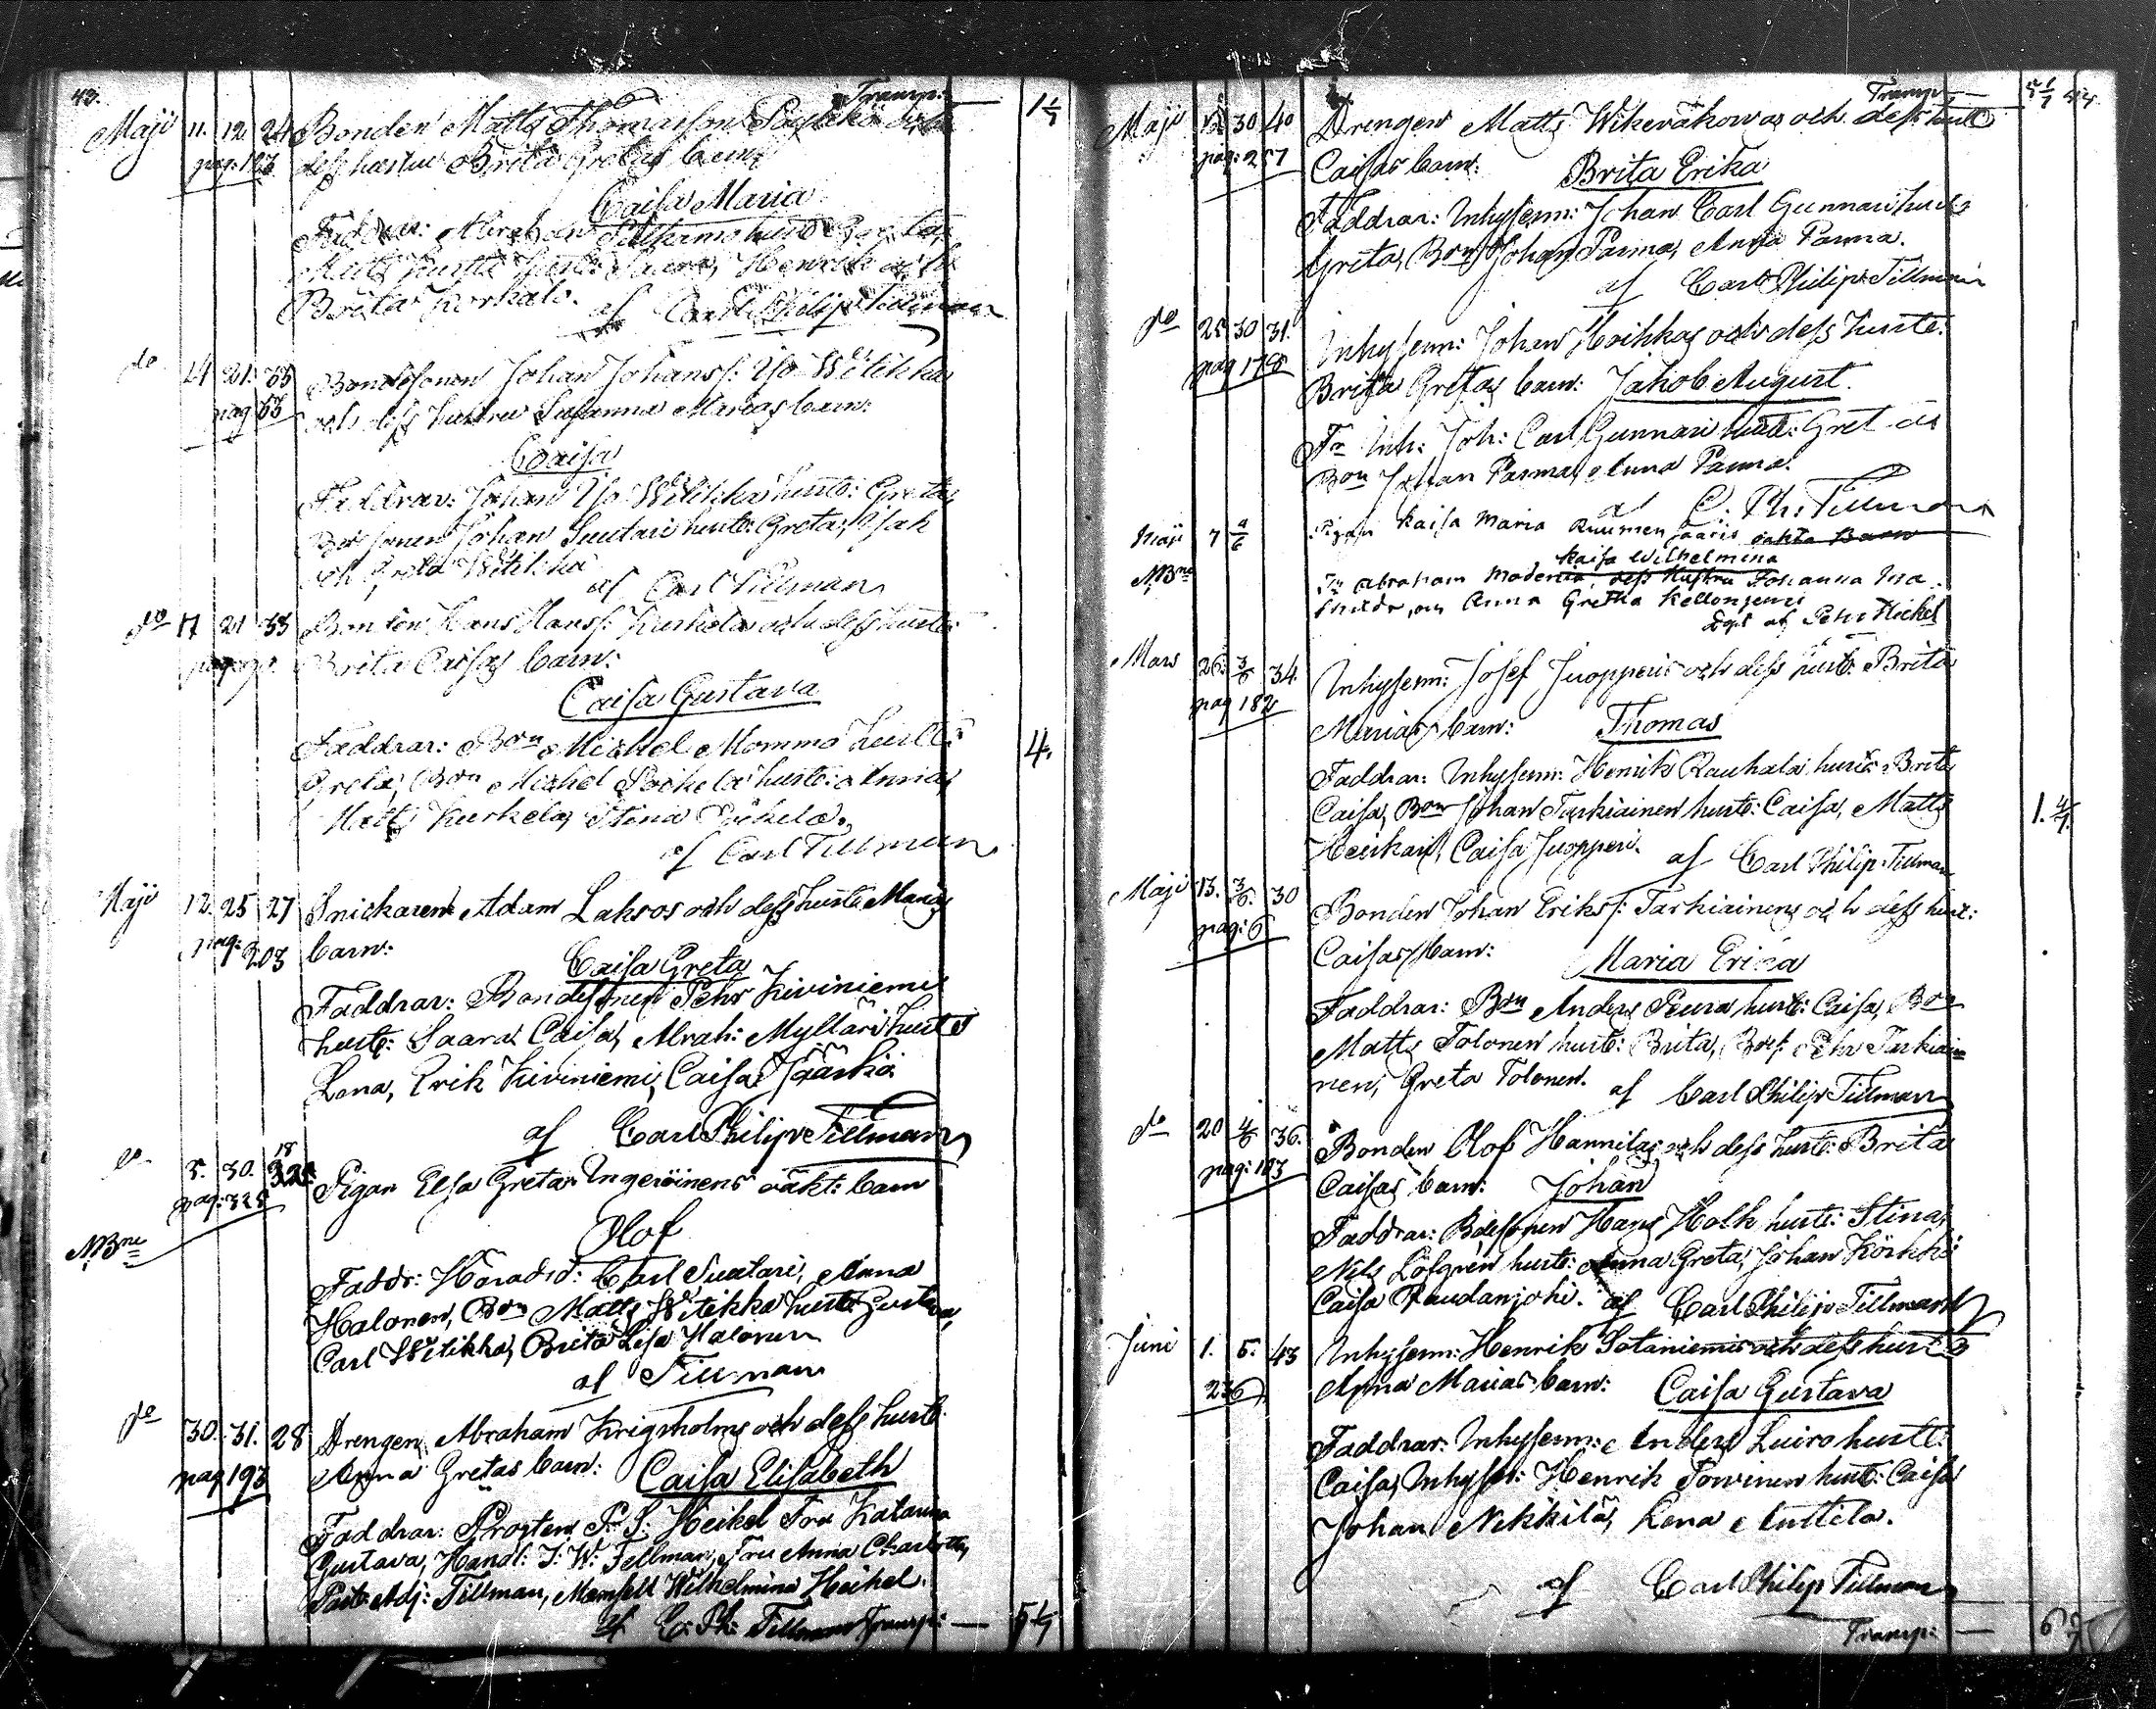 43.
Transp: — 1 1/7
Maji 11. 12. 24 Bonden Matts Thomasson
pag: 183 dess hustru Brita Gretas barn:
Caisa Maria
Faddrar: Abraham hust:
Matts hustr: Henrik och
Brita Kerkelo. af Carl Philip Tillman
do 14 21. 33 Bondesonen Johan Johanss: Yso Witikka
pag 63 och dess hustru Susanna Marias barn:
Caisa
Faddrar: Johan Yso Witikka hust: Greta,
Bdesonen Johan Suutari hust: Greta, Isak
och Greta Witikka
af Carl Tillman
do 17 21 33 Bonden Hans Hanss: Kurkelas och dess hust:
Brita Caisas barn:
Caisa Gustava
Faddrar: Bon Michel Mommo hust: 4.
Greta, Bon Michel Poikela hust: Anna,
Matts Kurkela, Stina Poikela.
af Carl Tillman
Maji 12 25 27 Snickaren Adam Laksos och dess hust: Marias
pag: 203 barn:
Caisa Greta
Faddrar: Bondesonen Pehr Kiviniemi
hust: Saara Caisa, Abrah: Mylläri hust:
Lena, Erik Kiviniemi, Caisa Jääskö
af Carl Philip Tillman
do 5. 30. 18
pag: 328 Pigan Elsa Greta Ingeröinens oäkt: barn
NBne Olof
Faddr: Häradsd: Carl Suutari, Anna
Halonen, Bon Matts Witikka hust: Gustava,
Carl Witikka, Brita Lisa Halonen
af Tillman
do 30. 31. 28 Drengen Abraham Krigsholms och dess hust:
pag 193 Anna Gretas barn: Caisa Elisabeth
Faddrar: Prosten P. J: Heikel Fru Katarina
Gustava, Handl: J: W: Fellman, Fru Anna Charlotta,
Past: Adj: Tillman, Mamsell Wilhelmina Heikel.
af C: Ph: Tillman Transp: — 5 1/7
Transp — 5 1/7
Maji 12 30 40 Drengen Matts Wikeväkowas och dess hust
pag: 257 Caisas barn: Brita Erika
Faddrar: Inhysesm: Johan Carl Gunnari hust:
Greta, Bon Johan Parma, Anna Parma.
af Carl Philip Tillman
do 25 30 31. Inhysesm: Johan Hoikkas och dess hust:
pag 178 Brita Gretas barn: Jakob August.
Fr Inh: Joh: Carl Gunnari hust: Greta
Bon Johan Parma, Anna Parma.
af C. Ph: Tillman
Maji 7 4/6 Pigan Kaisa Maria Ruumensaaris oäkta Barn
NBne Kaisa Wilhelmina
Fr Abraham Modenia, dess Hustru Johanna
och Anna Gretha Kellonjemi
af Pehr Hickel
Mars 26. 3/6 34. Inhysesm: Josef Juopperis och dess hust: Brita
pag 182 Marias barn: Thomas
Faddrar: Inhysesm: Henrik Rauhala hust: Brita
Caisa, Bon Johan Tarkiainen hust: Caisa, Matts 1. 4/7.
Heiskari, Caisa Juopperi. af Carl Philip Tillman
Maji 13. 3/6. 30 Bonden Johan Erikss: Tarkiainens och dess hust:
pag: 6 Caisas barn: Maria Erica
Faddrar: Bon Anders Peura hust: Caisa, Bon
Matts Tolonen hust: Brita, Bdes: Pehr Tarkiai=
nen, Greta Tolonen. af Carl Philip Tillman
do 20 4/6 36. Bonden Olof Hannilas och dess hust: Brita
pag: 183 Caisas barn: Johan
Faddrar: Bdesonen Hans Holk hust: Stina,
Nils Löfgren hust: Anna Greta, Johan Körkkö
Caisa Raudanjoki. af Carl Philip Tillman
Juni 1. 5. 43 Inhysesm: Henrik Sotaniemis och dess hust:
236 Anna Marias barn: Caisa Gustava
Faddrar: Inhysesm: Anders Luiro hust:
Caisa, Inhyses: Henrik Torvinen hust: Caisa
Johan Nikkilä, Lena Anttila.
af Carl Philip Tillman
Transp: — 6 5/7